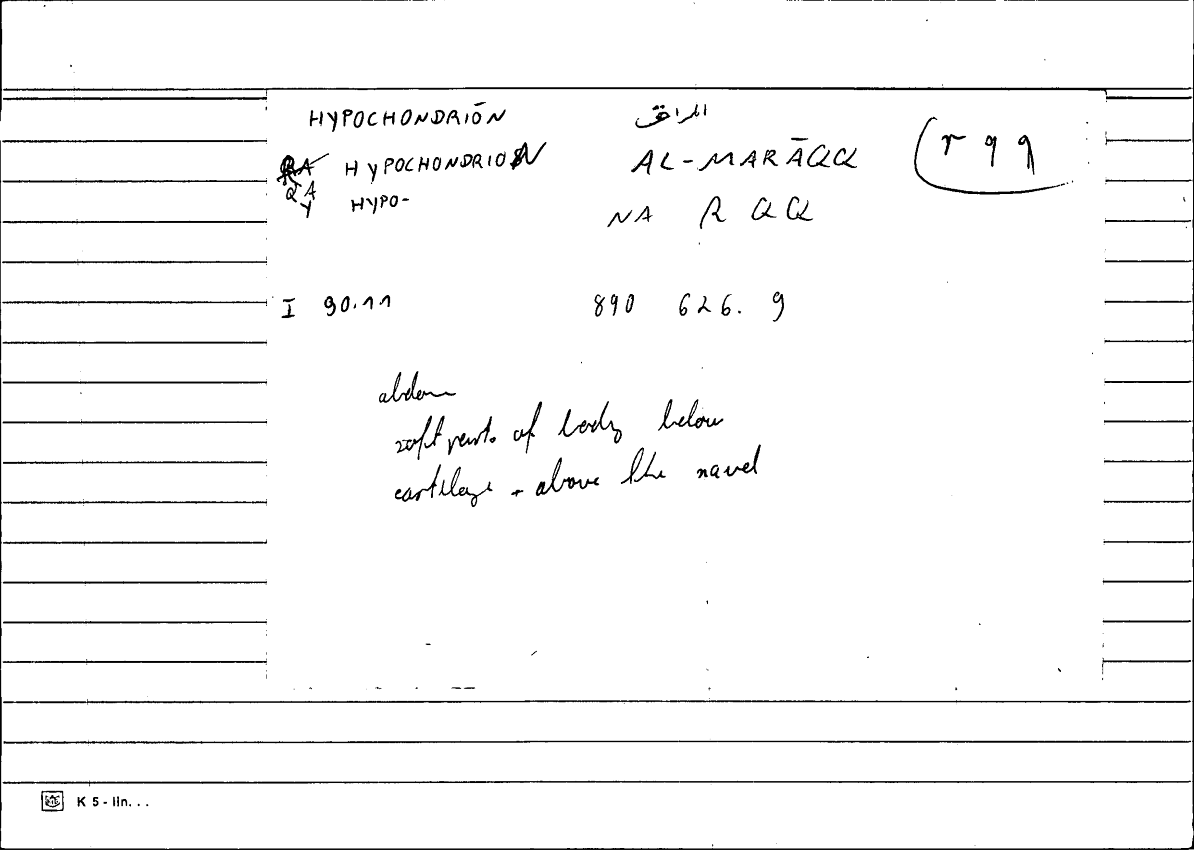 HYPOCHONDRIŌN المراق
HYPOCHONDRIO AL-MARĀQQ (r q q
QA
Y HYPO- NA R Q Q
I 90.11 890 626. 9
abdomen
soft parts of body below
cartilage + above the navel
K 5 - lin. . .